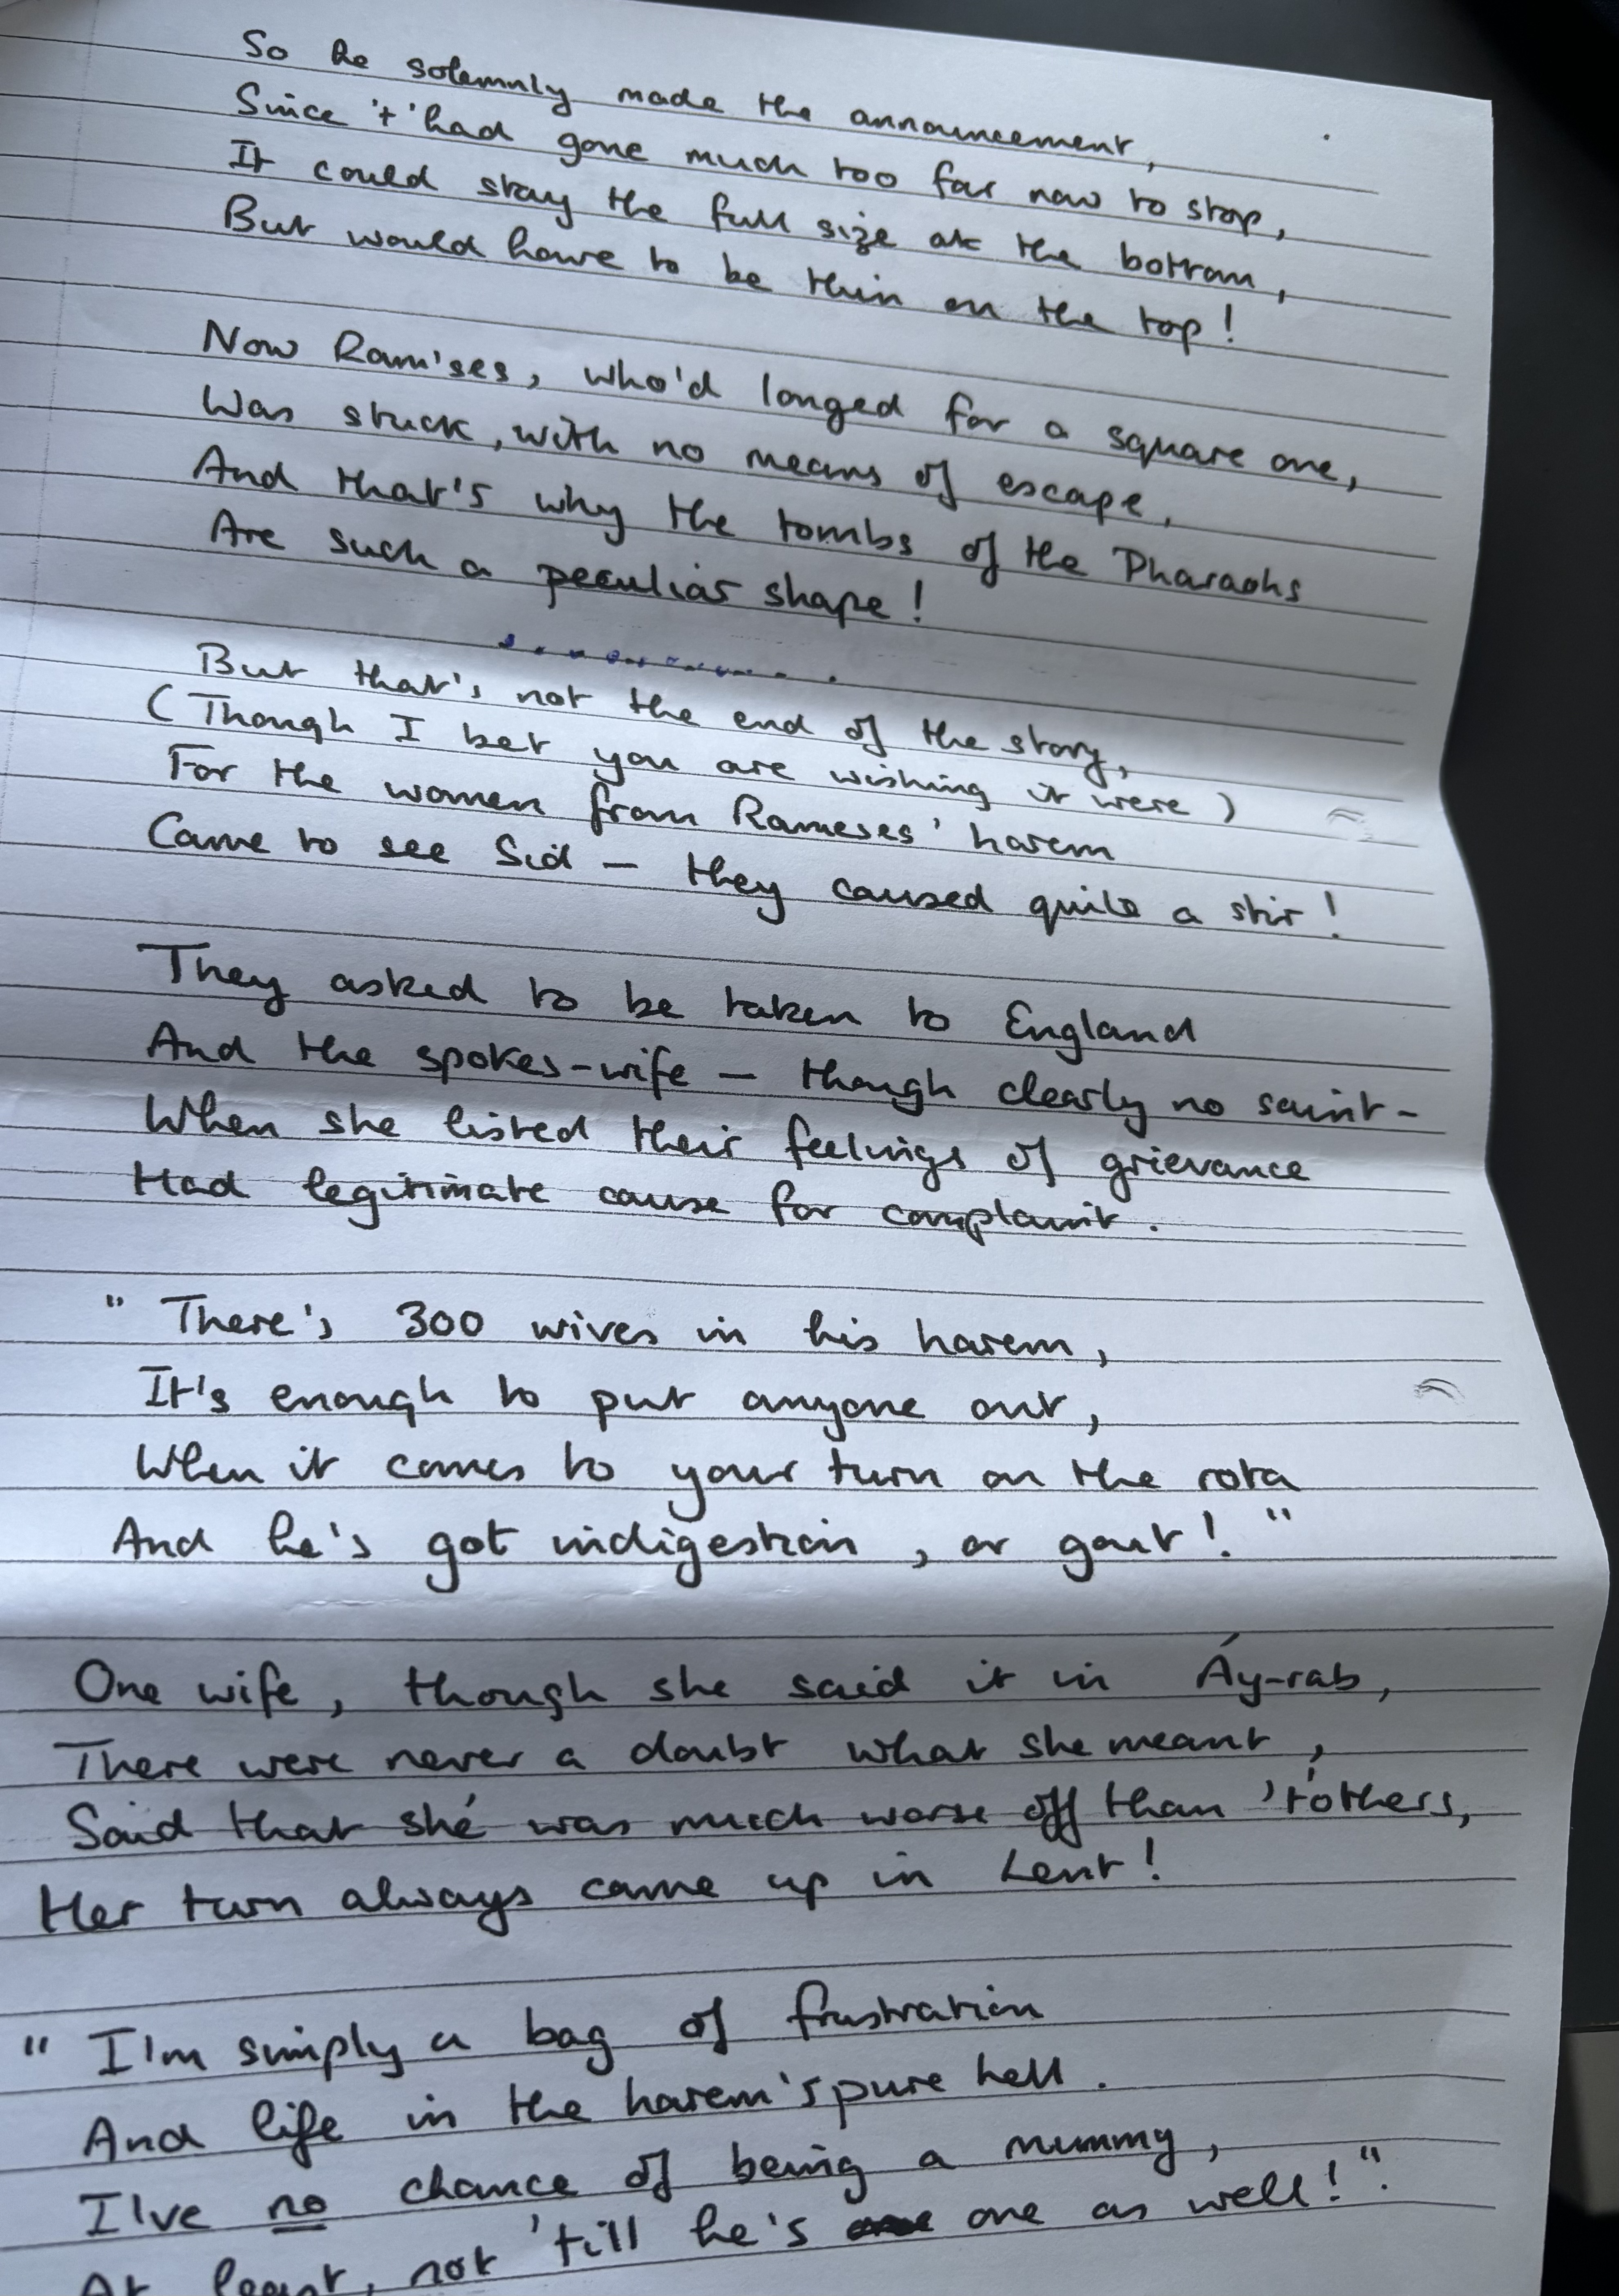 So he solemnly made the announcement,
Since 't' had gone much too far now to stop,
It could stay the full size at the bottom,
But would have to be thin on the top!
Now Ram'ses, who'd longed for a square one,
Was stuck, with no means of escape,
And that's why the tombs of the Pharaohs
Are such a peculiar shape!
But that's not the end of the story,
(Though I bet you are wishing it were)
For the women from Rameses' harem
Came to see Sid – they caused quite a stir!
They asked to be taken to England
And the spokes-wife – though clearly no saint –
When she listed their feelings of grievance
Had legitimate cause for complaint.
"There's 300 wives in his harem,
It's enough to put anyone out,
When it comes to your turn on the rota
And he's got indigestion, or gout!"
One wife, though she said it in Áy-rab,
There were never a doubt what she meant,
Said that she was much worse off than 't'others,
Her turn always came up in Lent!
"I'm simply a bag of frustration
And life in the harem's pure hell.
I've no chance of being a mummy,
At least, not 'till he's one as well!".